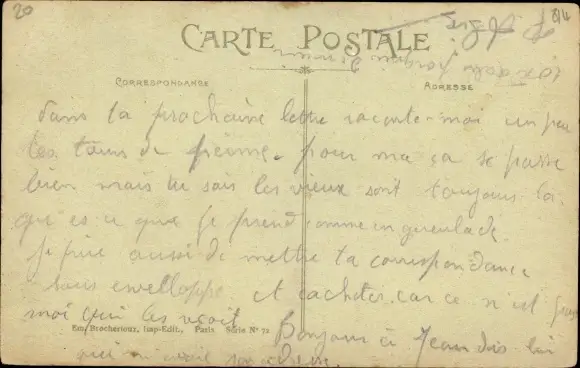 20
CARTE POSTALE
CORRESPONDANCE
ADRESSE
dans ta prochaine lettre raconte-moi un peu
les tours de pour ma ça se passe
bien mais tu sais les vieux sont toujours la
qu es ce que je prend comme engueulade.
je prie aussi de mettre ta correspondance
sous envelloppe et cacheter car ce n'est pas
moi qui les reçoit
Em. Brocherioux, Imp-Edit., Paris Série N° 72
Bonjour à Jean dis lui